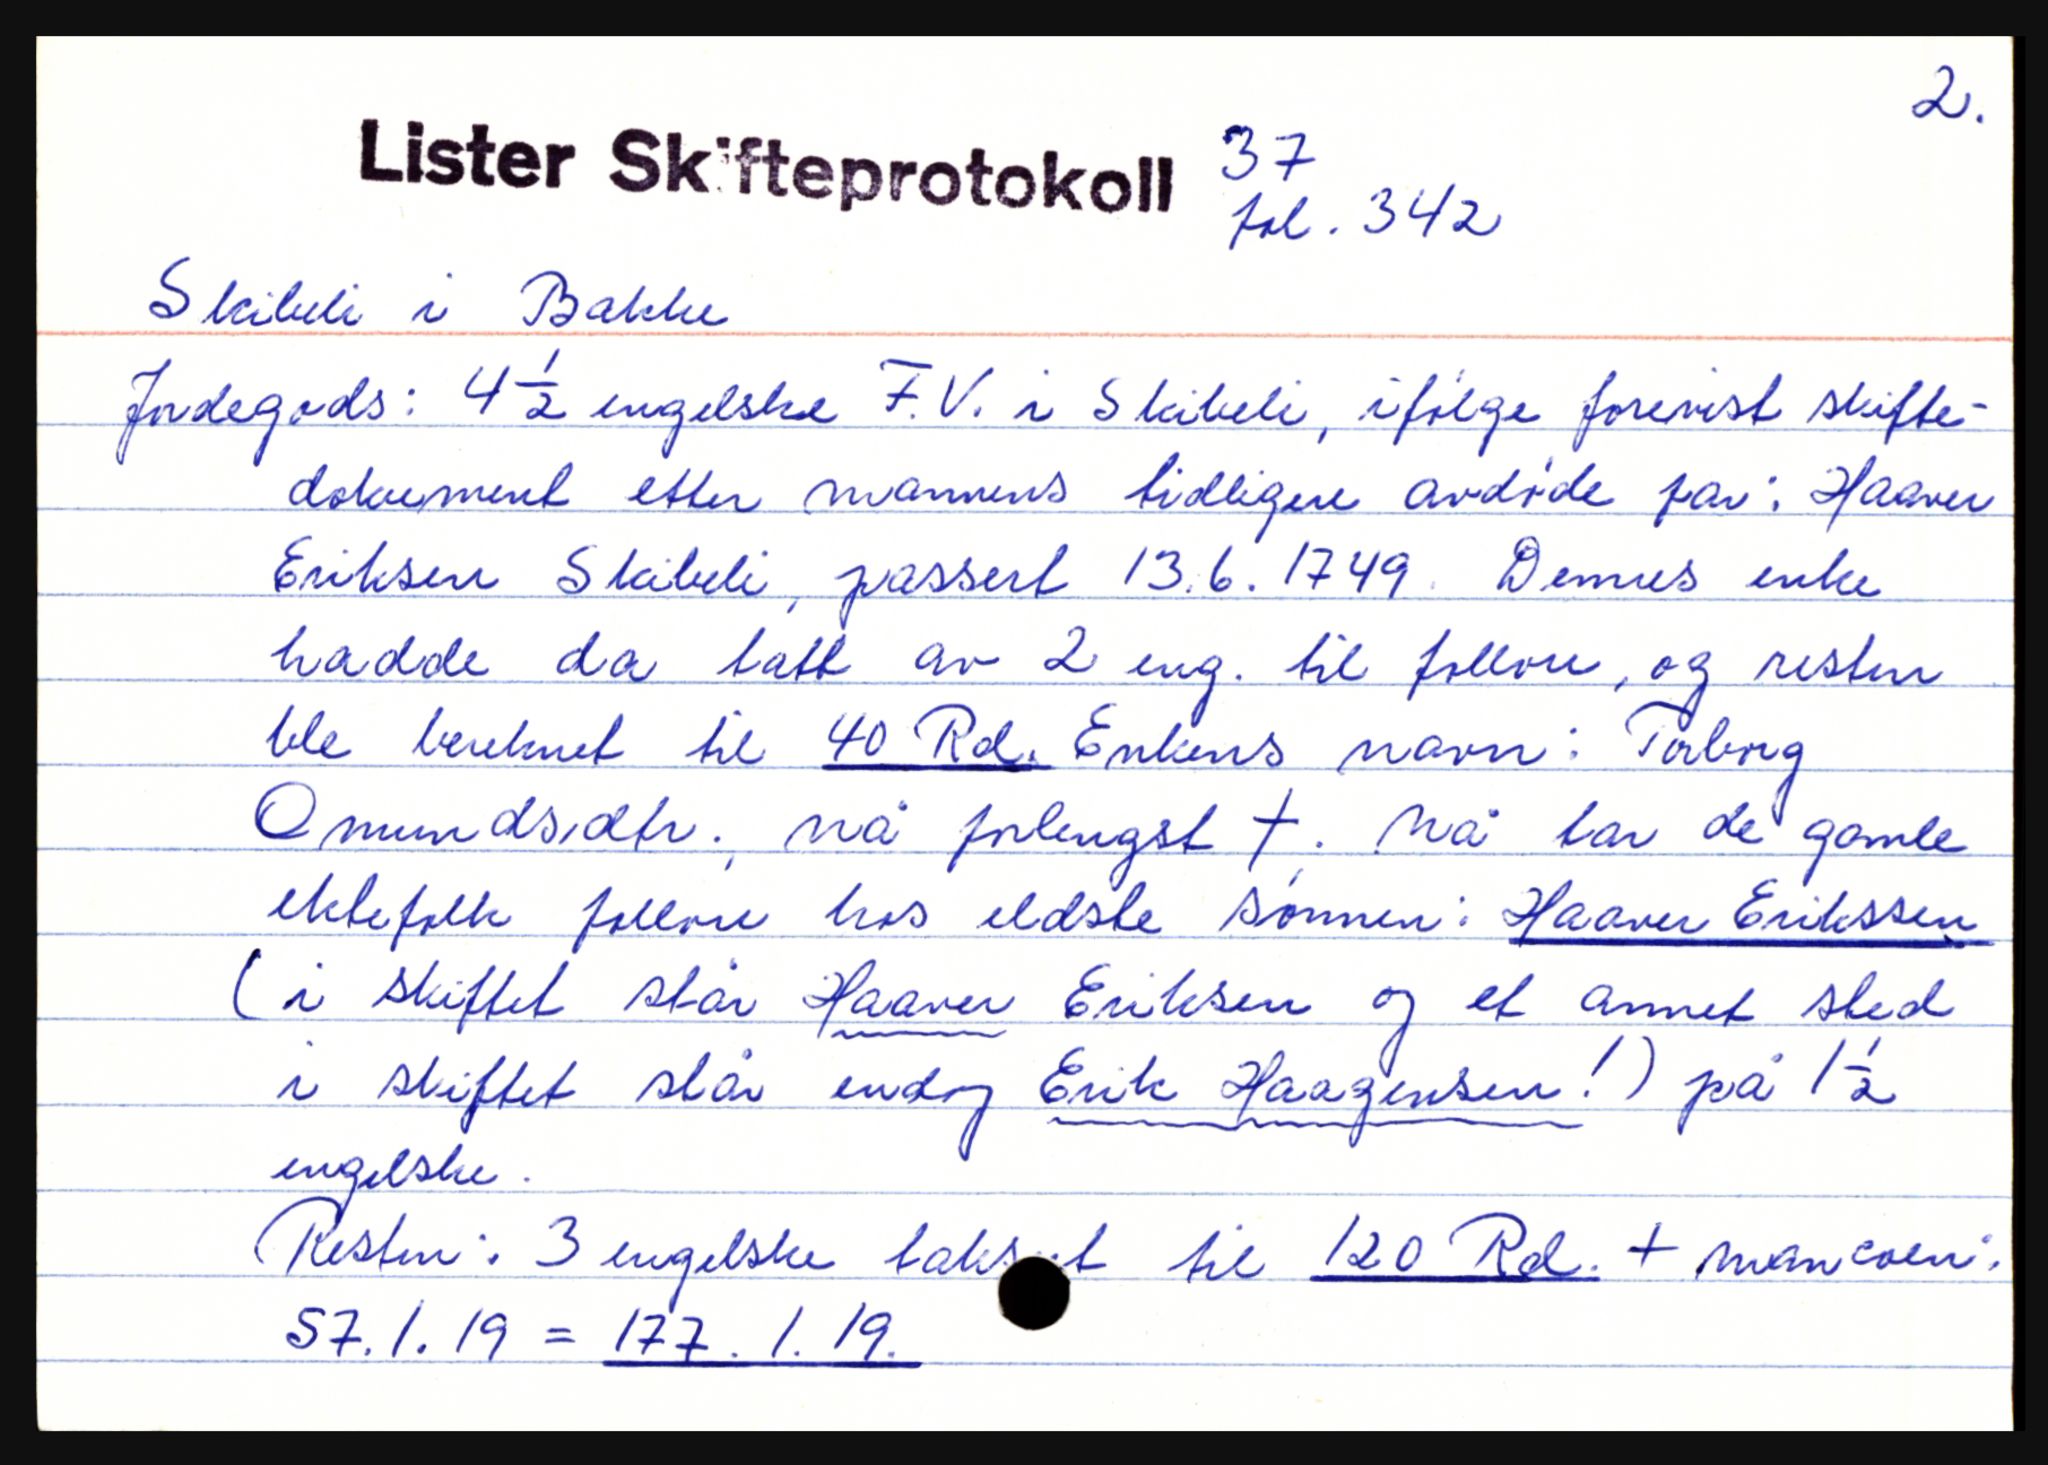 2.
Lister Skifteprotokoll 37
fol. 342
Skibeli i Bakke
Jordegods: 4 1/2 engelske F.V. i Skibeli, ifølge forevist skifte-
dokument etter mannens tidligere avdøde far: Haaver
Eriksen Skibeli, passert 13.6.1749. Dennes enke
hadde da tatt av 2 eng. til føllou, og resten
ble bereknet til 40 Rd. Enkens navn: Torborg
Omundsdtr., nå forlengst †. Nå tar de gamle
ektefolk follou hos eldste sønnen: Haaver Erikssen
(i skiftet står Haaver Eriksen og et annet sted
i skiftet står endog Erik Haagensen!) på 1 1/2
engelske.
Resten: 3 engelske taksert til 120 Rd. + mancoen:
57.1.19 = 177.1.19.